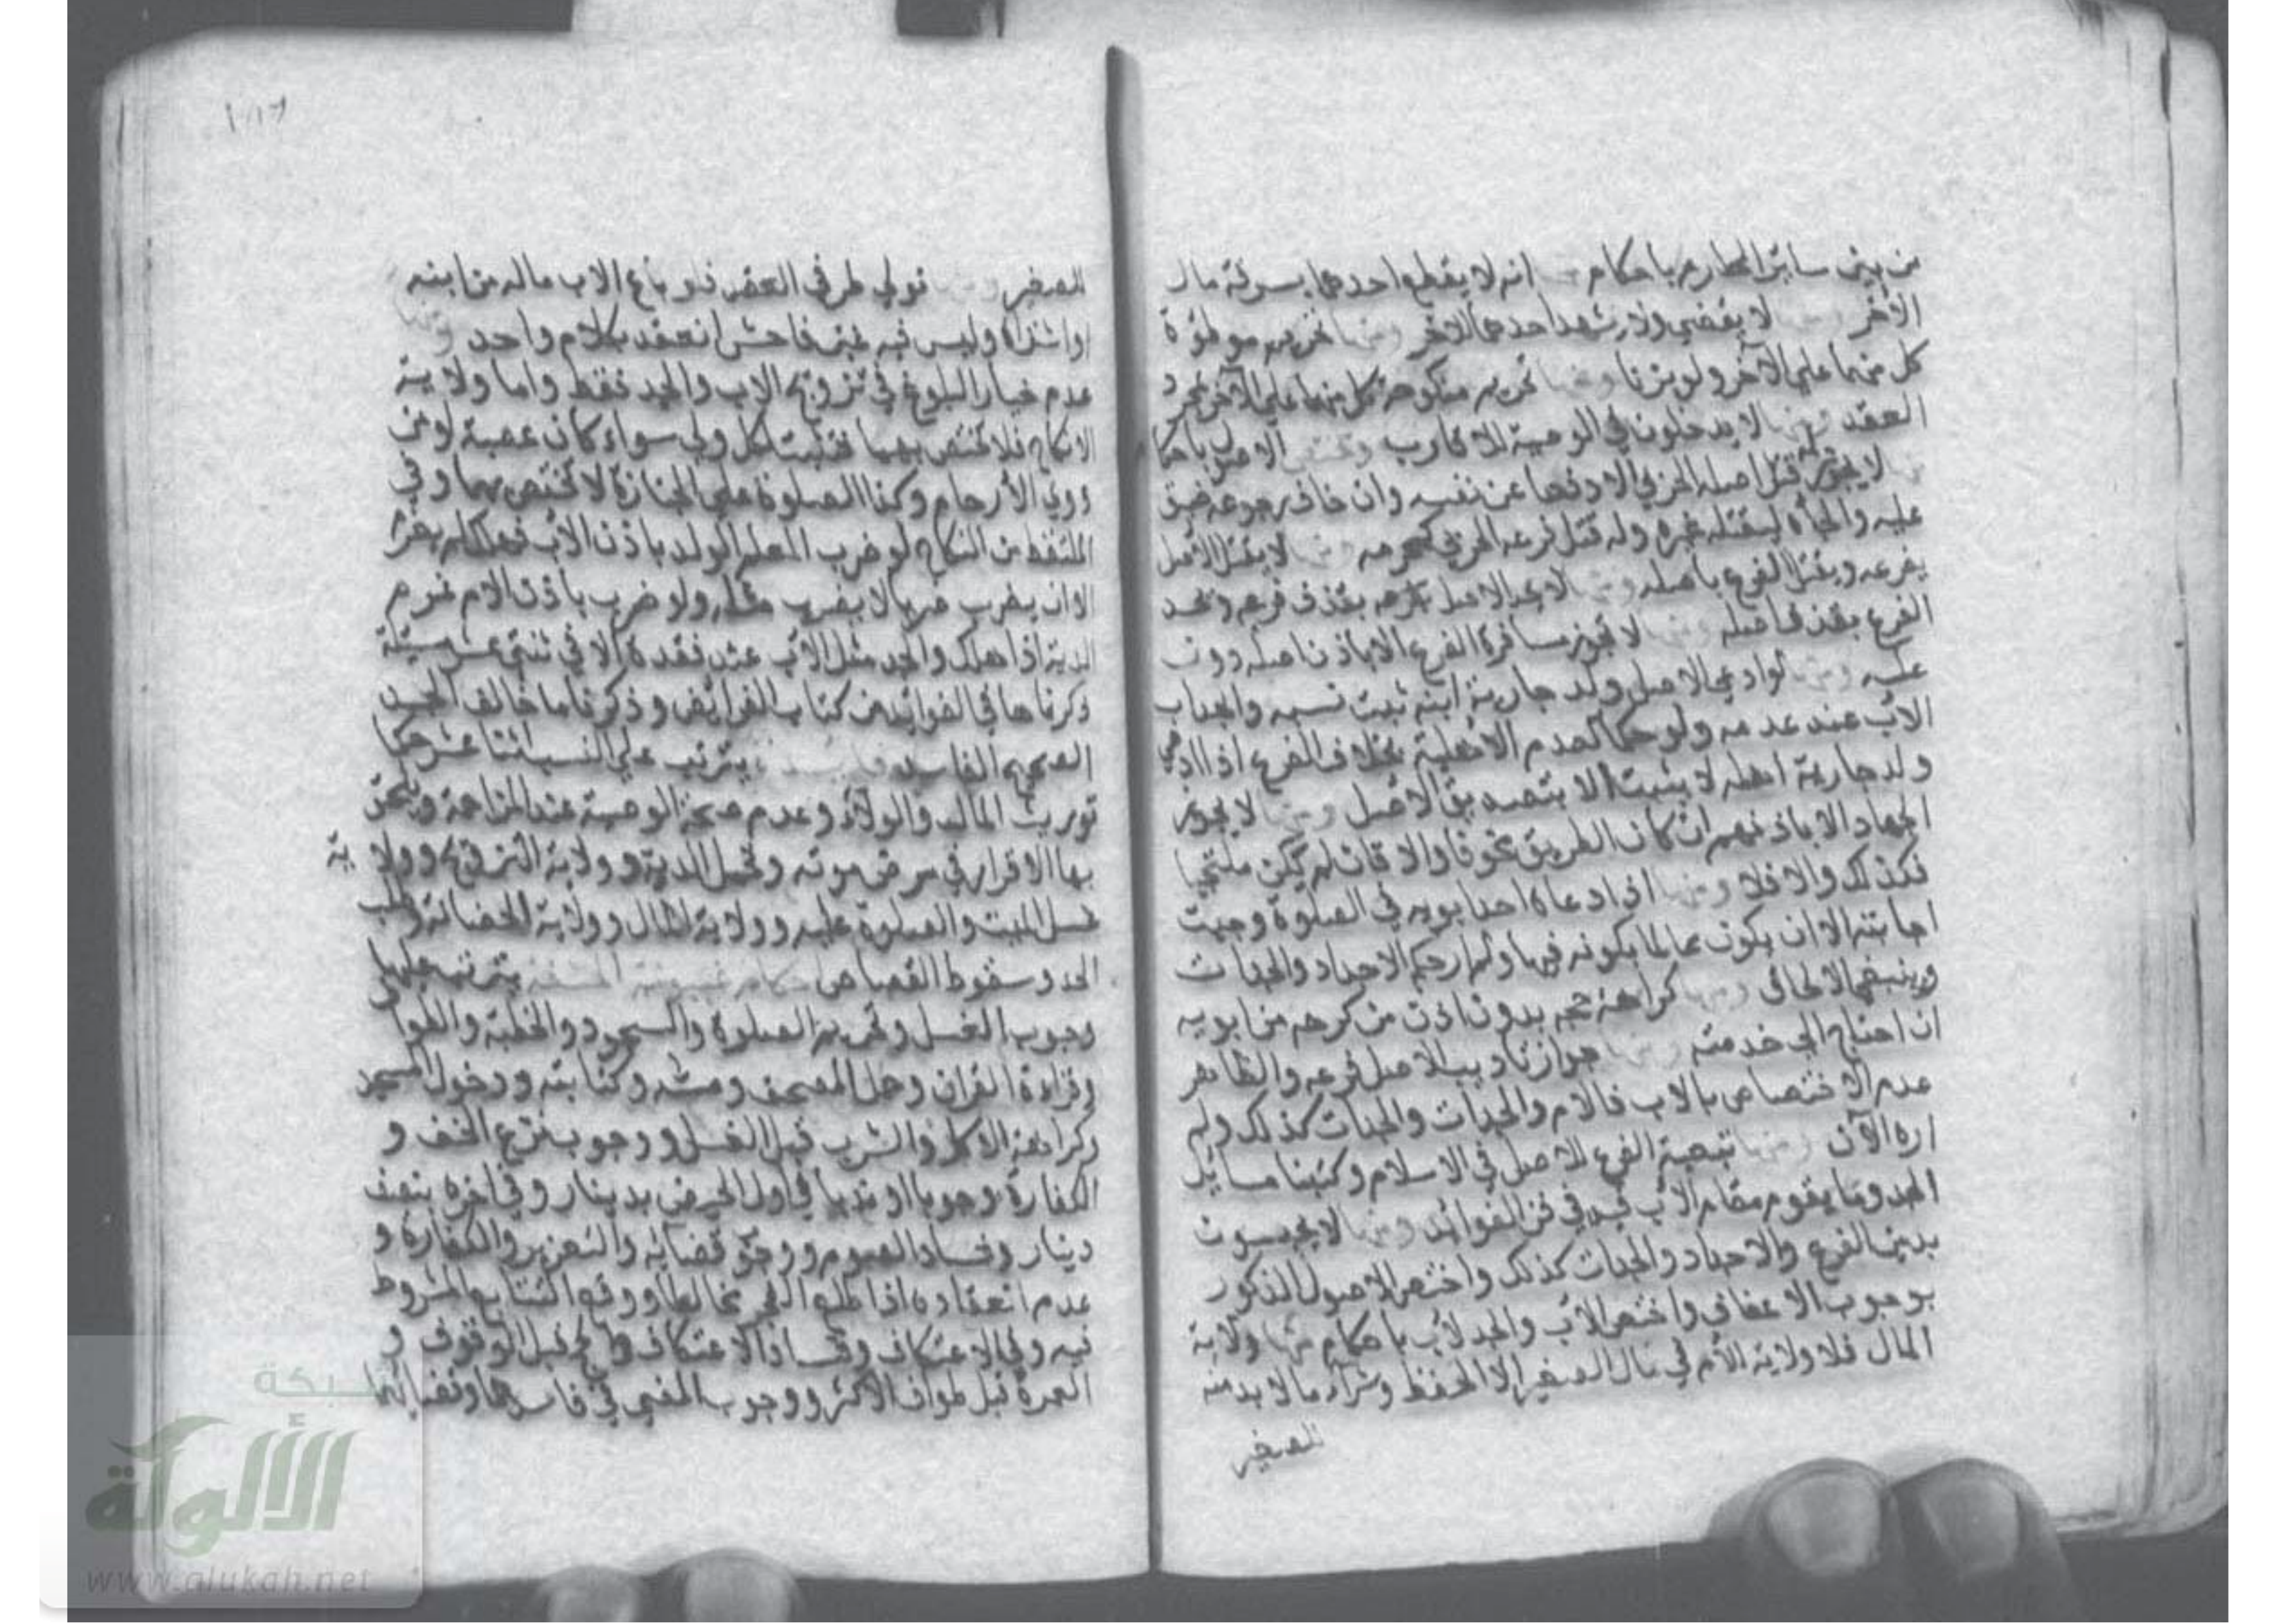 من بين سائر المحارم باحكام منها انه لا يقطع احدهما بسرقة مال
الاخر ومنها لا يقضي ولا يشهد احدهما للاخر ومنها تحريم موطؤة
كل منهما علي الآخر ولو بزنا ومنها تحريم منكوحة كل منهما علي الآخر بمجرد
العقد ومنها لا يدخلون في الوصية للاقارب وتختص الاصول باحكا
منها لا يجوز قتل اصله الحربي الا دفعا عن نفسه وان خاف رجوعه ضيق
عليه والجأه ليقتله غيره وله قتل فرعه الحربي كمحرمه ومنها لا يقتل الاصل
بفرعه ويقتل الفرع باصله ومنها لا يحد الاصل بقذف فرعه ويحد
الفرع بقذف اصله ومنها لا تجوز مسافرة الفرع الا باذن اصله دون
عكسه ومنها لو ادعي الاصل ولد جارية ابنه ثبت نسبه والجد اب
الاب عند عدمه ولو حكما لعدم الاهلية بخلاف الفرع اذا ادعي
ولد جارية اصله لا يثبت الا بتصديق الاصل ومنها لا يجوز
الجهاد الا باذنهم ان كان الطريق مخوفا والا فان لم يكن ملتحيا
فكذلك والا فلا ومنها اذا دعاه احد ابويه في الصلوة وجبت
اجابته الا ان يكون عالما بكونه فيها ولم ار حكم الاجداد والجدات
وينبغي الالحاق ومنها كراهة حجه بدون اذن من كرهه من ابويه
ان احتاج الي خدمته ومنها جواز تاديب الاصل فرعه والظاهر
عدم الاختصاص بالاب فالام والاجداد والجدات كذلك ولم
اره الآن ومنها تبعية الفرع للاصل في الاسلام وكتبنا مسايل
الجد وما يقوم مقام الاب فيه في فن الفوائد ومنها لا يحبسون
بدين الفرع والاجداد والجدات كذلك واختص الاصول الذكور
بوجوب الاعفاف واختص الاب والجد لاب باحكام منها ولاية
المال فلا ولاية للأم في مال الصغير الا الحفظ وشراء ما لا بد منه
للصغير
للصغير ومنها تولي طرفي العقد فلو باع الاب ماله من ابنه
او اشتراه وليس فيه غبن فاحش انعقد بكلام واحد ومنها
عدم خيار البلوغ في تزويج الاب والجد فقط واما ولاية
الانكاح فلا تختص بهما فتثبت لكل ولي سواء كان عصبة او من
ذوي الأرحام وكذا الصلوة علي الجنازة لا تختص بهما وفي
الملتقط من النكاح لو ضرب المعلم الولد باذن الاب فهلك لم يغرم
الا ان يضرب ضربا لا يضرب مثله ولو ضرب باذن الام غرم
الدية اذا هلك والجد مثل الاب عند فقده الا في ثنتي عشر مسئلة
ذكرناها في الفوائد من كتاب الفرايض وذكرنا ما خالف الجد
الصحيح الفاسد فايدة يترتب علي النسب اثنا عشر حكما
توريث المال والولاء وعدم صحة الوصية عند المزاحمة ويلحق
بها الاقرار في مرض موته وتحمل الدية وولاية التزويج وولاية
غسل الميت والصلوة عليه وولاية المال وولاية الحضانة وطلب
الحد وسقوط القصاص احكام غيبوبة الحشفة يترتب عليها
وجوب الغسل وتحريم الصلوة والسجود والخطبة والطواف
وقراءة القران وحمل المصحف ومسه وكتابته ودخول المسجد
وكراهة الاكل والشرب قبل الغسل ووجوب نزع الخف و
الكفارة وجوبا او ندبا في اول الحيض بدينار وفي اخره بنصف
دينار وفساد الصوم ووجوب قضائه والتعزير والكفارة و
عدم انعقاده اذا طلع الفجر مخالطا وقطع التتابع المشروط
فيه وفي الاعتكاف وفساد الاعتكاف والحج قبل الوقوف و
العمرة قبل طواف الاكثر ووجوب المضي في فاسدهما وقضائهما
شبكة
الألوكة
www.alukah.net